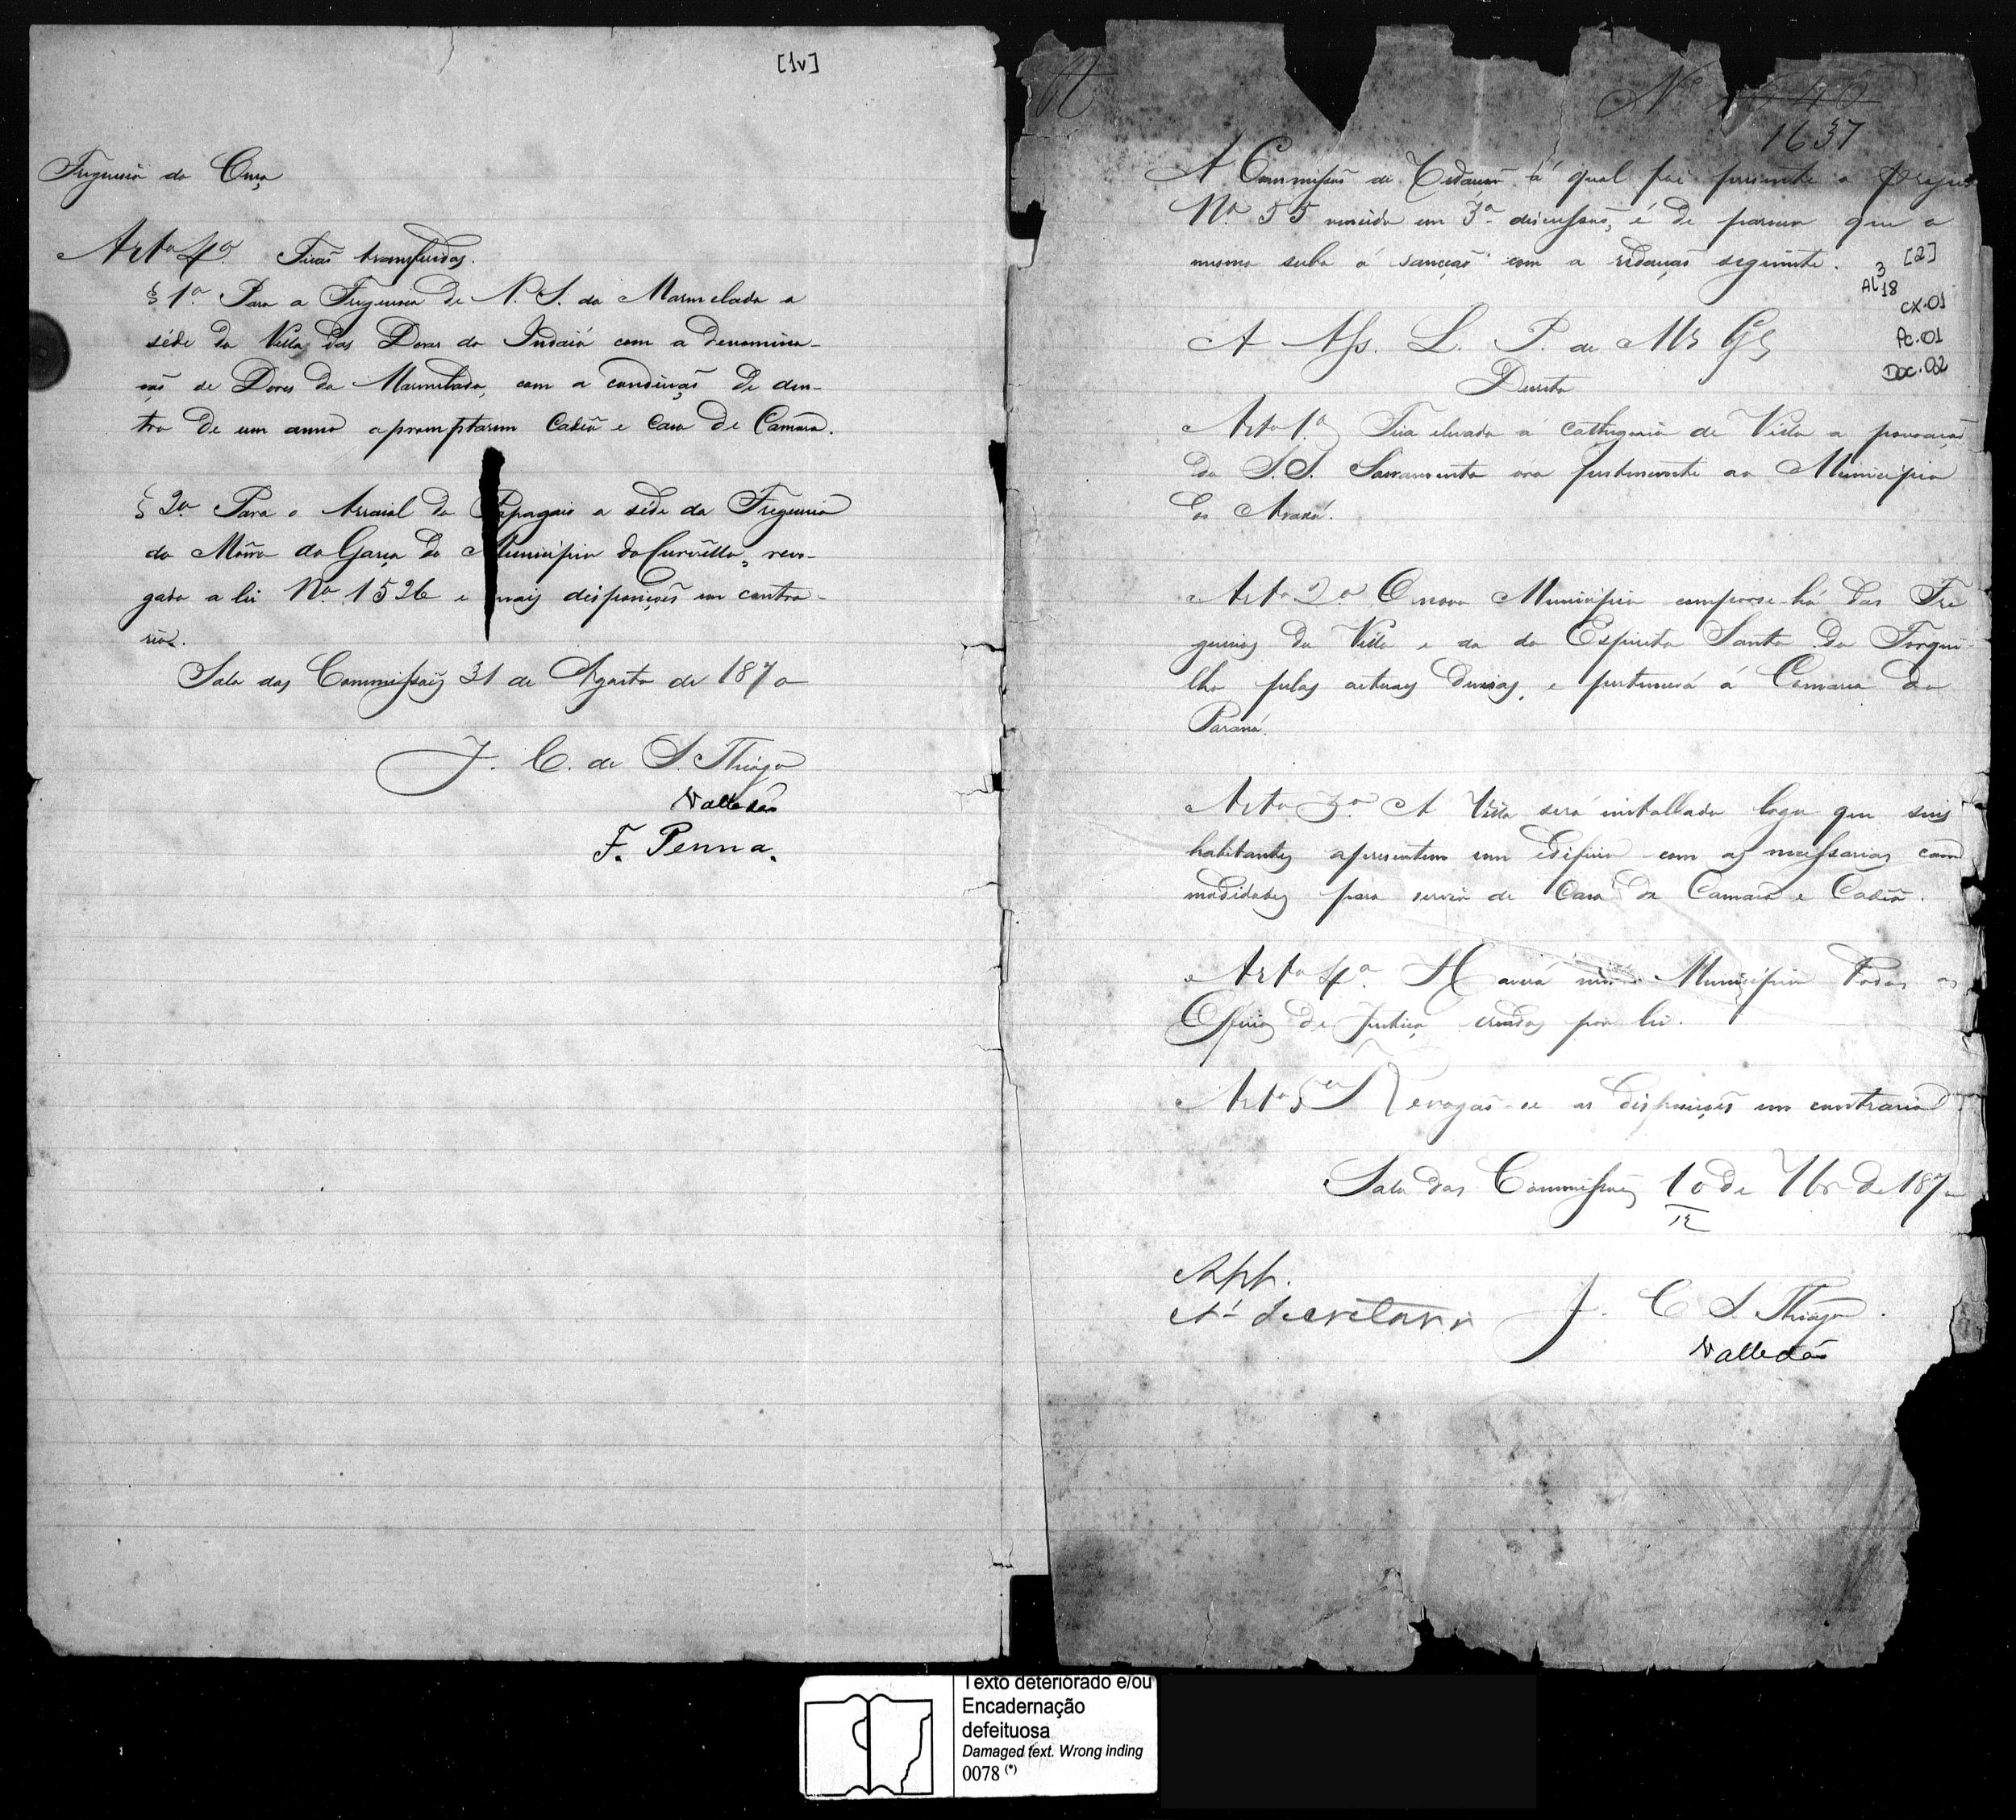 [1v]
Freguesia da Onça
Arto 4o. Ficão transferidas.
§ 1o. Para a Freguesia de N. S. da Marmelada a
séde da Villa das Dores do Indaiá com a denomina-
ção de Dores da Marmelada, com a condição de den-
tro de um anno apromptarem Cadêa e Casa de Camara.
§ 2o Para o Arraial do Papagaio a séde da Freguesia
do Môrro da Garça do Municipio do Curvêllo, revo-
gada a lei No. 1526 e mais disposições em contra-
rio.
Sala das Commissões 31 de Agosto de 1870
J. C. de S. Thiago
Valladão
F. Penna.
No
1637
A Commissão de Redacção á qual foi presente o Projecto
No 55 vencido em 3a. discussão, é de parecer que o
mesmo suba á sancção com a redacção seguinte.
[2]
3
Al 18
CX.01
Pc.01
Doc.02
A Ass. L. P. de Ms Gs
Decreta
Arto 1o Fica elevada á cathegoria de Villa a povoação
do S.S. Sacramento ora pertencente ao Municipio
do Araxá.
Arto 2o O novo Municipio compor-se-há das Fre
guesias da Villa e da do Espirito Santo da Forqui-
lha pelas actuaes divisas, e pertencerá á Comarca do
Paraná.
Arto 3o. A Villa será installada logo que seus
habitantes apresentem um edificio com as necessarias com
modidades para servir de Casa da Camara e Cadêa.
Arto 4o. Haverá no Municipio todos os
Officios de Justiça creados por lei.
Arto 5o Revogão-se as disposições em contrario
Sala das Commissões 10 de 7br de 1870
App.
Á Secretaria
J. C S. Thiago.
Valladão
Texto deteriorado e/ou
Encadernação
defeituosa
Damaged text. Wrong inding
0078 (*)